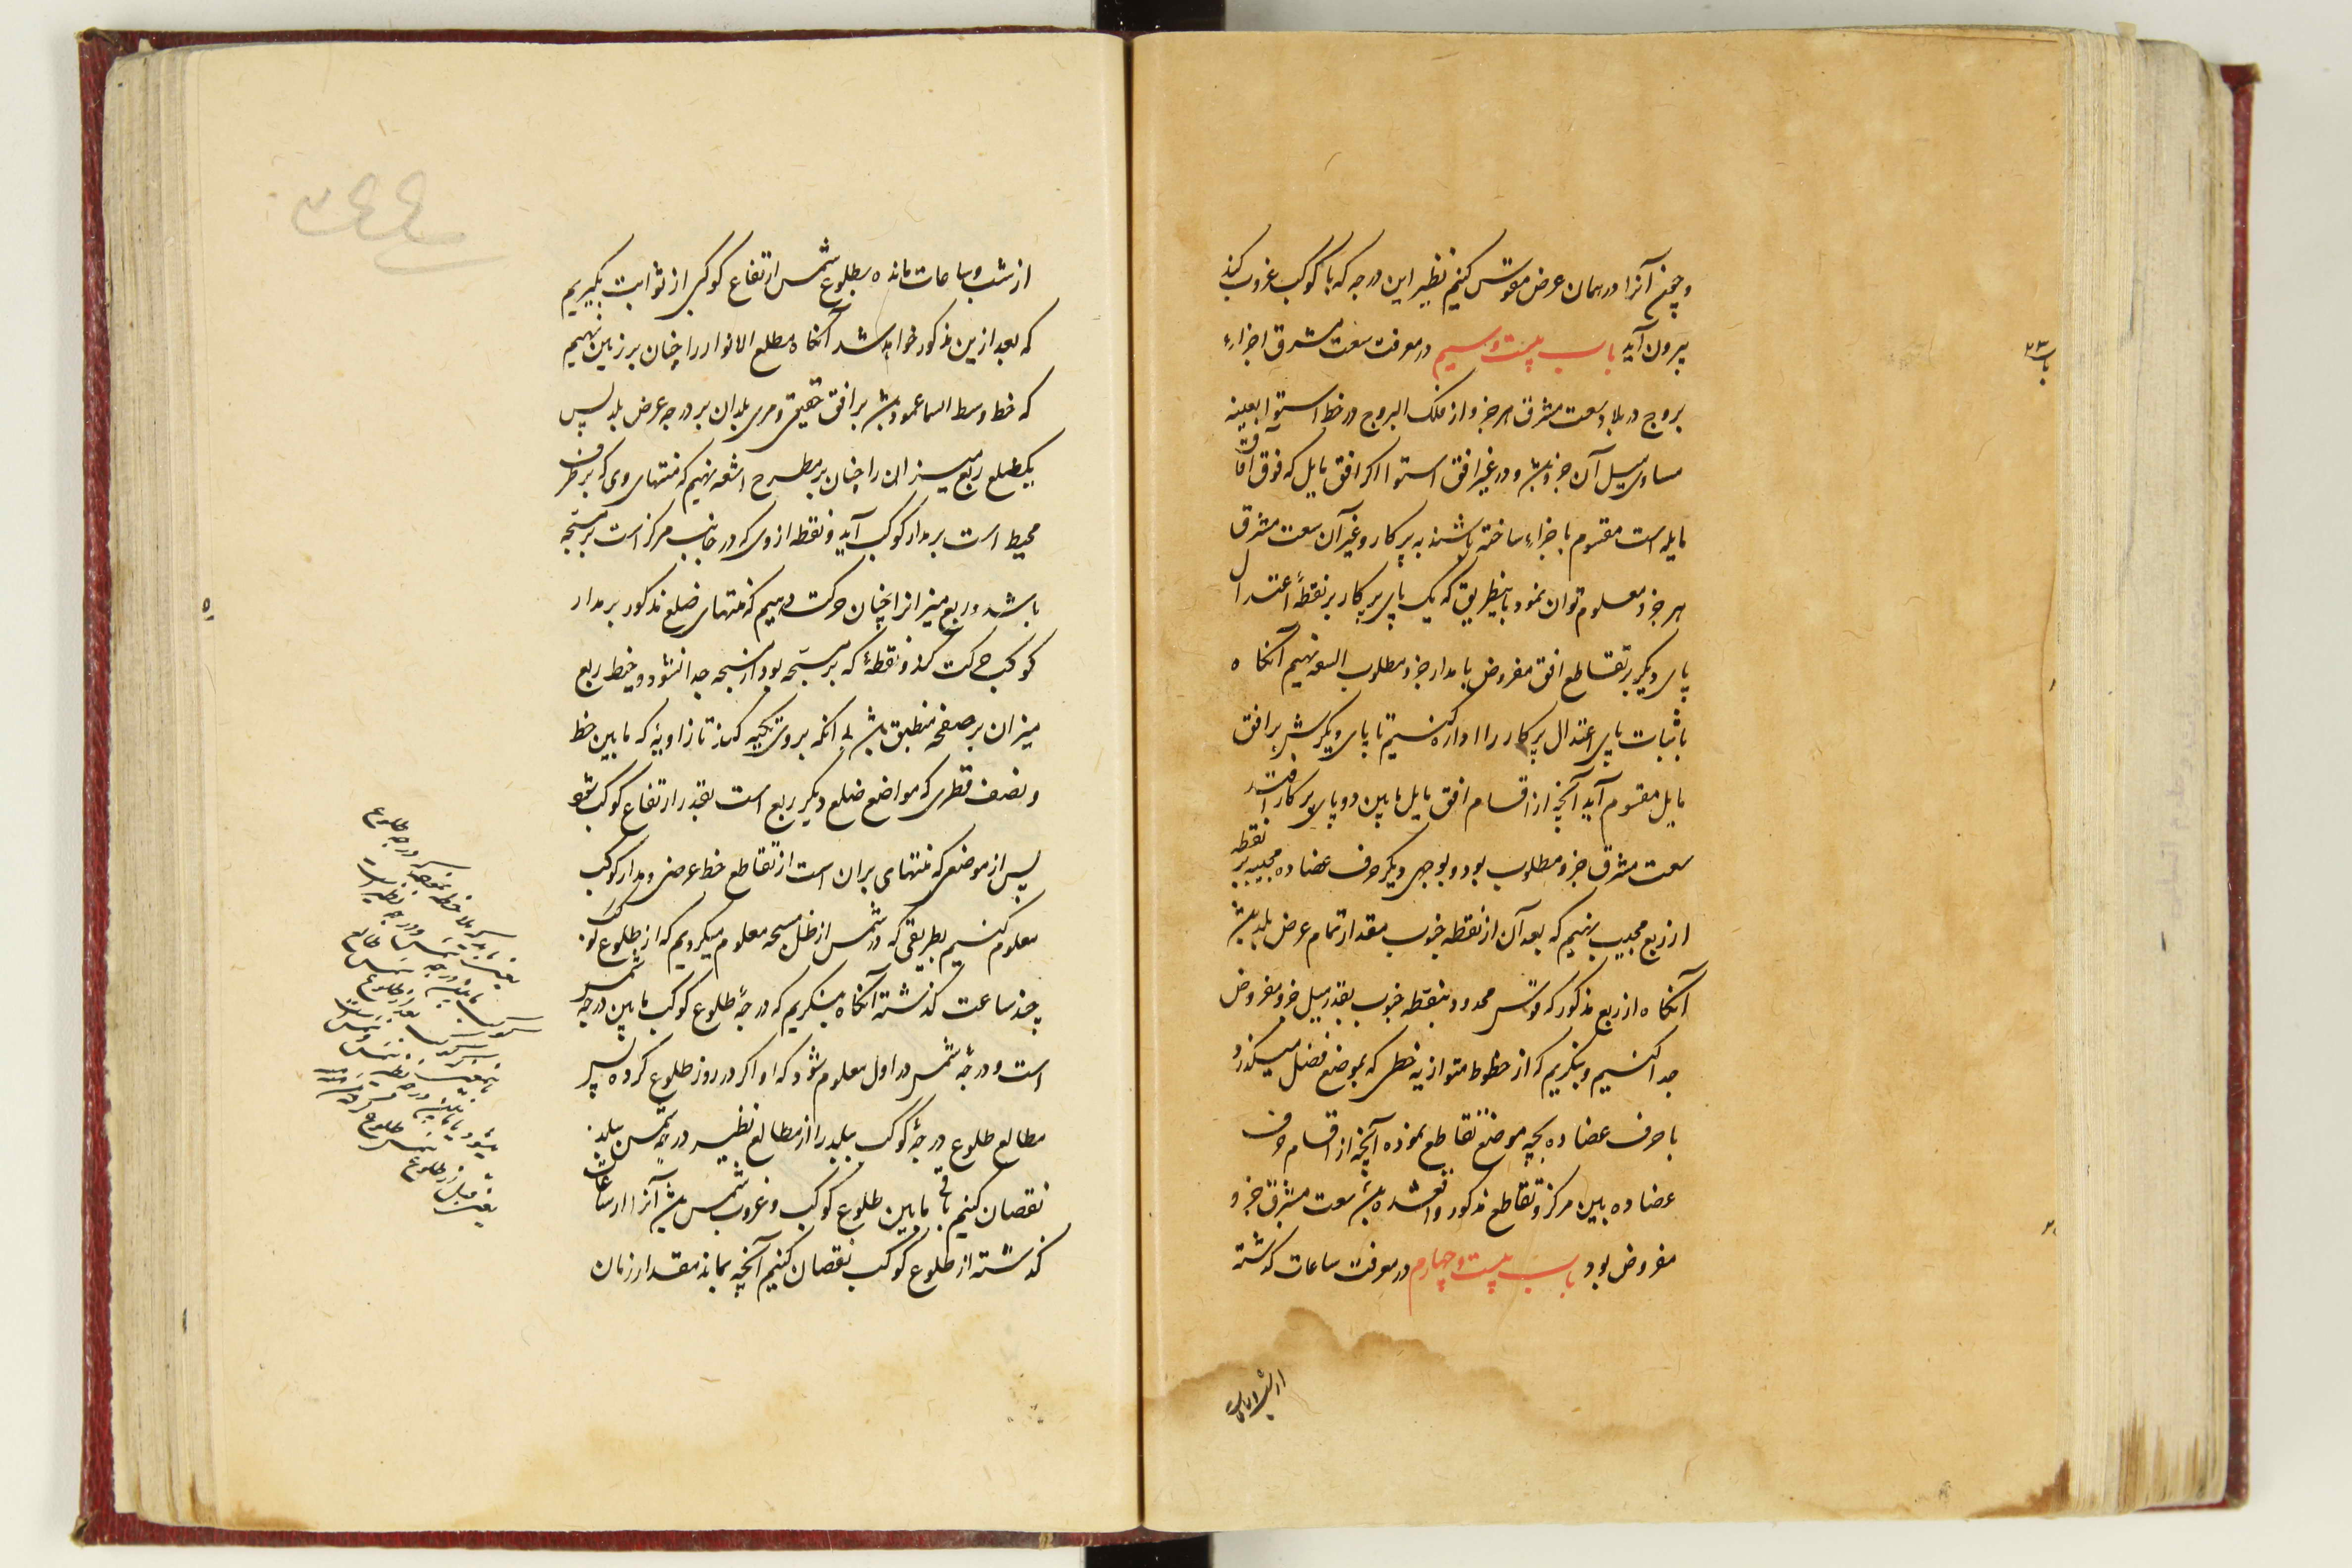 و چون آنرا در همان عرض مقوس کنیم نظیر این درجه که با کوکب غروب کند
بیرون آید باب بیست و سیم در معرفت سعت مشرق اجزاء
بروج در بلاد سعت مشرق هر جزو از فلک البروج در خط استوا بعینه
مساوی میل آن جزو باشد و در غیر افق استوا اکر افق مایل که فوق آفاق
مایله است مقسوم باجزاء ساخته باشند به پرکار و غیر آن سعت مشرق
هر جزو معلوم توان نمود باینطریق که یک پای پرکار بر نقطهٔ اعتدال
پای دیکر بر تقاطع افق مفروض با مدار جزو مطلوب السعه نهیم آنکاه
باثبات پای اعتدال پرکار را اداره کنیم تا پای دیکرش بر افق
مایل مقسوم آید آنچه از اقسام افق مایل مابین دو پای پرکار افتد
سعت مشرق جزو مطلوب بود و بوجهی دیکر حرف عضاده مجیبه بر نقطه
از ربع مجیب نهیم که بعد آن از نقطه جنوب مقدار تمام عرض بلد باشد
آنکاه از ربع مذکور که قوس محدود بنقطه جنوب بقدر میل جزو مفروض
جدا کنیم و بنکریم که از خطوط متوازیه خطی که بموضع فصل میکذرد
با حرف عضاده بچه موضع تقاطع نموده آنچه از اقسام حرف
عضاده بین مرکز و تقاطع مذکور واقع شده باشد سعت مشرق جزو
مفروض بود باب بیست و چهارم در معرفت ساعات کذشته
باب ۲۳
از شب و ساعات
از شب و ساعات مانده بطلوع شمس ارتفاع کوکبی از ثوابت بکیریم
که بعد ازین مذکور خواهد شد آنکاه مطلع الانوار را چنان بر زمین نهیم
که خط وسط السما عمود باشد بر افق حقیقی و مری بلدان بر درجه عرض بلد پس
یکضلع ربع میزان را چنان بر مطرح اشعه نهیم که منتهای وی که بر طرف
محیط است بر مدار کوکب آید و نقطه از وی که در جانب مرکز است بر مسبحه
باشد و ربع میزانرا چنان حرکت دهیم که منتهای ضلع مذکور بر مدار
کوکب حرکت کند و نقطهٔ که بر مسبحه بود از مسبحه جدا نشود و خیط ربع
میزان بر صفحه منطبق باشد بی آنکه بروی تکیه کند تا زاویهٔ که مابین خط
و نصف قطری که مواضع ضلع دیکر ربع است بقدر ارتفاع کوکب شود
پس از موضعی که منتهای بران است از تقاطع خط عرضی و مدار کوکب
معلوم کنیم بطریقی که در شمس از ظل مسبحه معلوم میکردیم که از طلوع کوکب
چند ساعت کذشته آنکاه بنکریم که درجهٔ طلوع کوکب مابین درجه شمس
است و درجهٔ شمس در اول معلوم شود که او اکر در روز طلوع کرده پس
مطالع طلوع درجهٔ کوکب ببلد را از مطالع نظیر درجهٔ شمس ببلد
نقصان کنیم تا مابین طلوع کوکب و غروب شمس باشد آنرا از ساعات
کذشته از طلوع کوکب نقصان کنیم آنچه بماند مقدار زمان